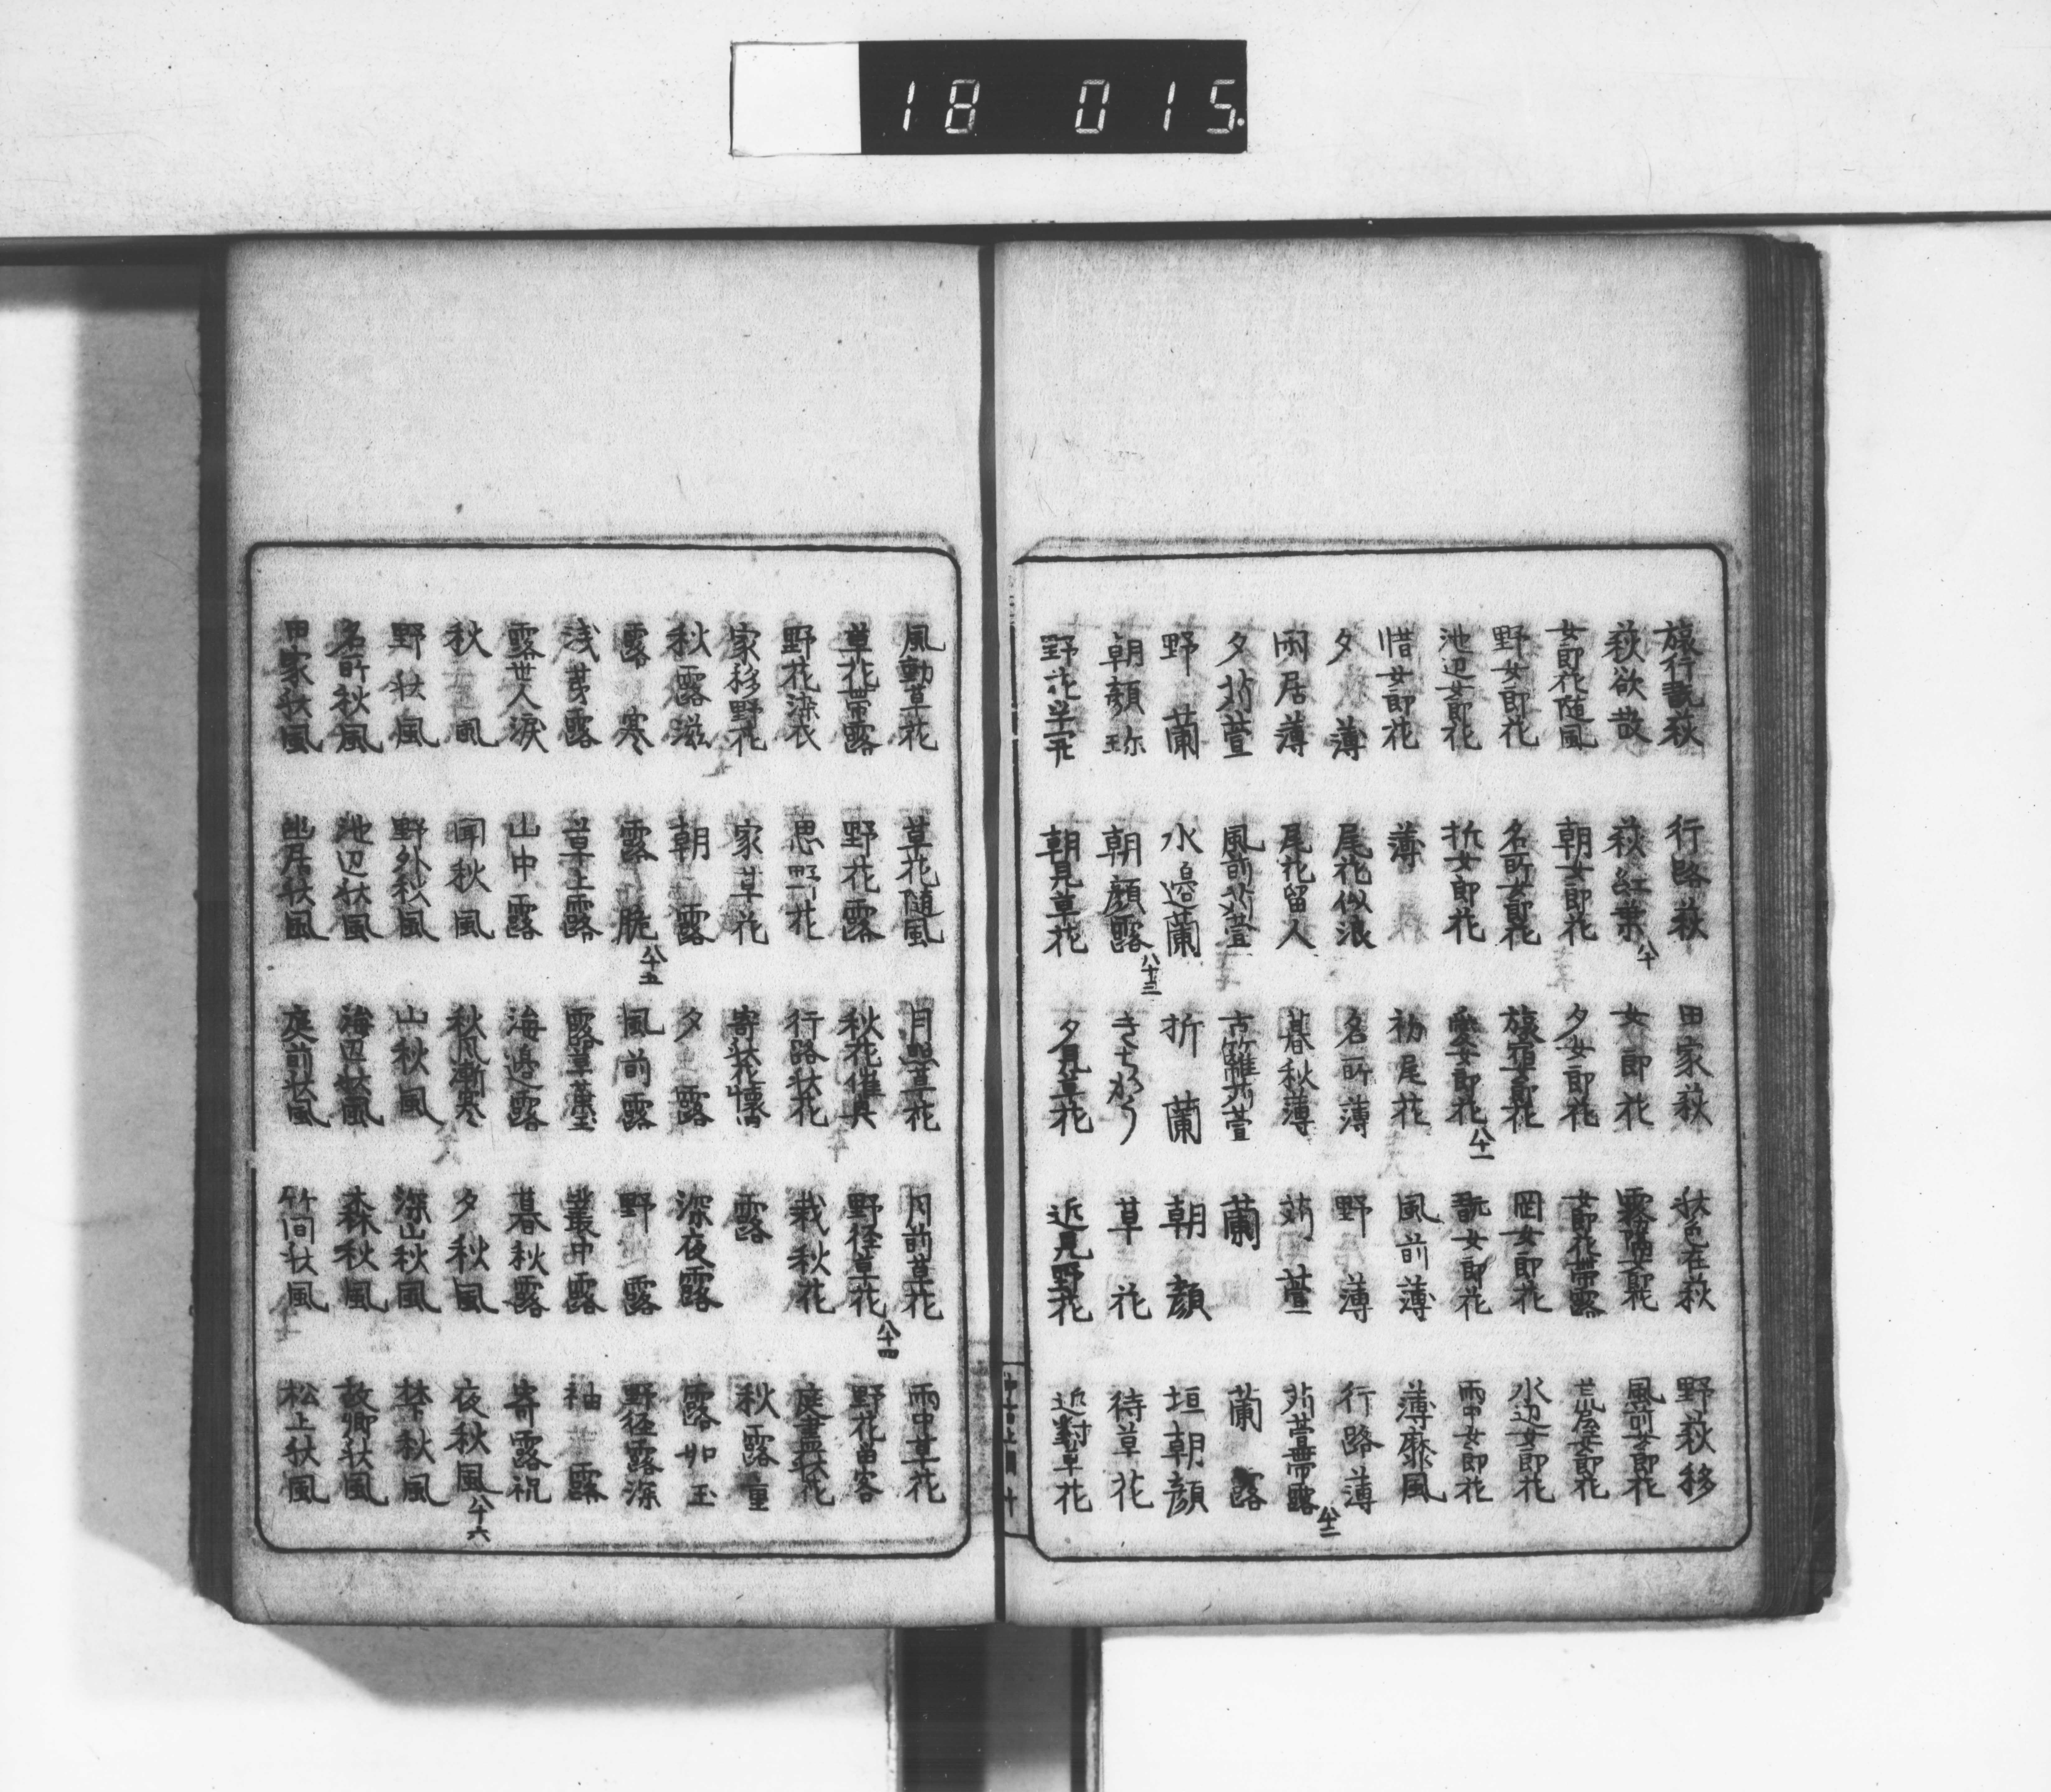 18 015
旅行翫萩 行路萩 田家萩 秋色在萩 野萩移
萩欲散 萩紅葉 八十 女郎花 霧隔女郎花 風前女郎花
女郎花随風 朝女郎花 夕女郎花 女郎花帯露 荒屋女郎花
野女郎花 名所女郎花 旅宿女郎花 岡女郎花 水辺女郎花
池辺女郎花 折女郎花 愛女郎花 八十一 翫女郎花 雨中女郎花
惜女郎花 薄 初尾花 風前薄 薄靡風
夕薄 尾花似浪 名所薄 野薄 行路薄
閑居薄 尾花留人 暮秋薄 苅萱 苅萱帯露 八十二
夕苅萱 風前苅萱 古籬苅萱 蘭 蘭露
野蘭 水邉蘭 折蘭 朝顔 垣朝顔
朝顔珎 朝顔露 八十三 きちかう 草花 待草花
野花 朝見草花 夕見草花 近見野花 近對草花
風動草花 草花随風 月照草花 月前草花 雨中草花
草花帯露 野花露 秋花催興 野径草花 八十四 野花留客
野花染衣 思野花 行路秋花 栽秋花 庭盡秋花
家移野花 家草花 寄秋花懐旧 露 秋露重
秋露滋 朝露 夕露 深夜露 露如玉
露寒 露脆 八十五 風前露 野露 野径露深
浅茅露 草上露 露 叢中露 袖露
露世人涙 山中露 海邉露 暮秋露 寄露祝
秋風 聞秋風 秋風漸寒 夕秋風 夜秋風 八十六
野秋風 野外秋風 山秋風 深山秋風 秋風
名所秋風 池辺秋風 海辺秋風 森秋風 故郷秋風
田家秋風 幽居秋風 庭前秋風 竹間秋風 松上秋風